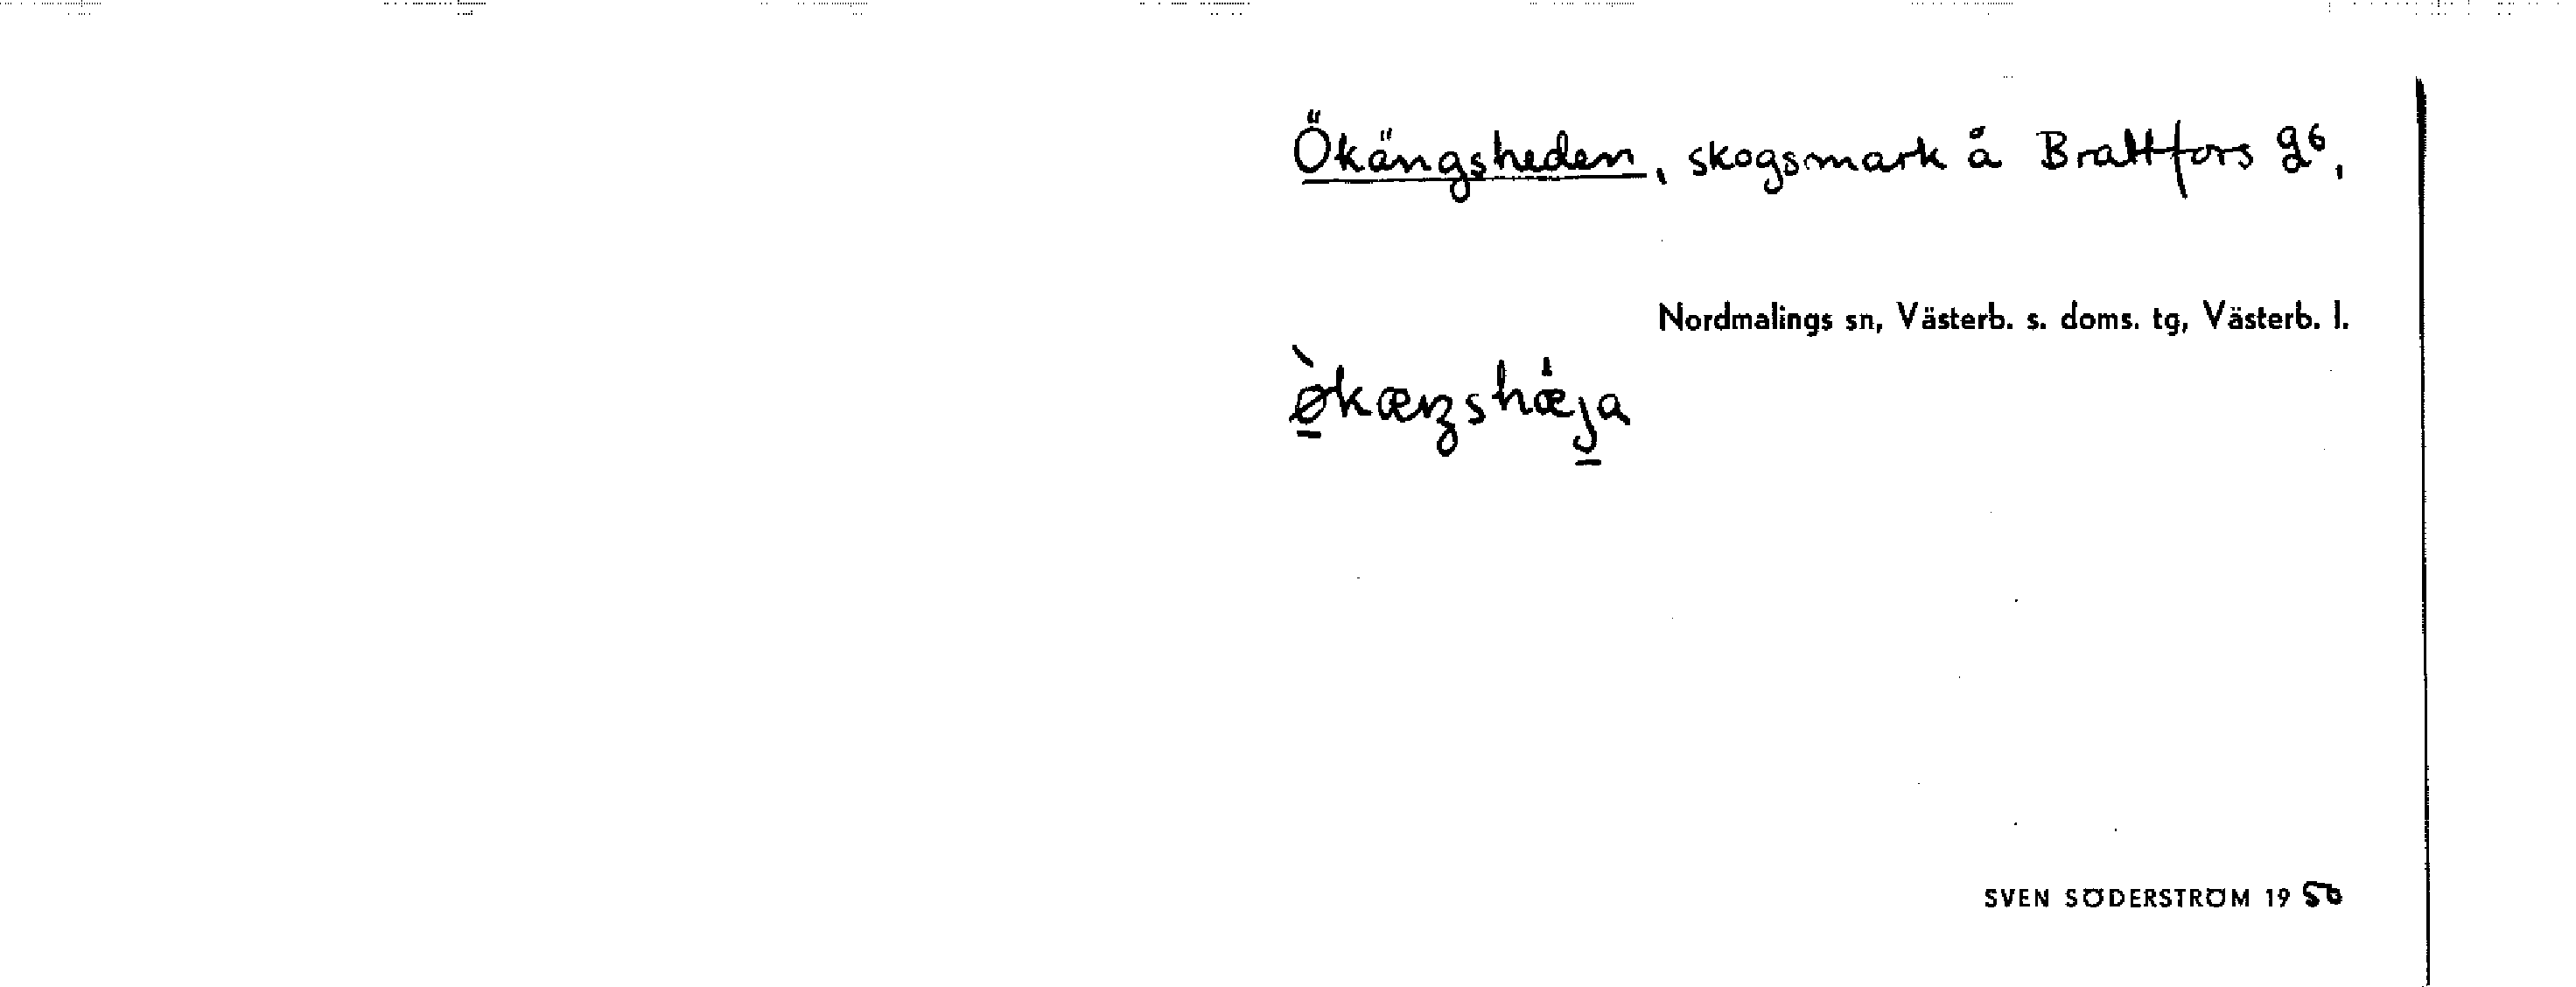 Ökängsheden, skogsmark å Brattfors g6,
Nordmalings sn, Västerb. s. doms. tg, Västerb. l.
ø̀kæŋshæja
SVEN SÖDERSTRÖM 1950